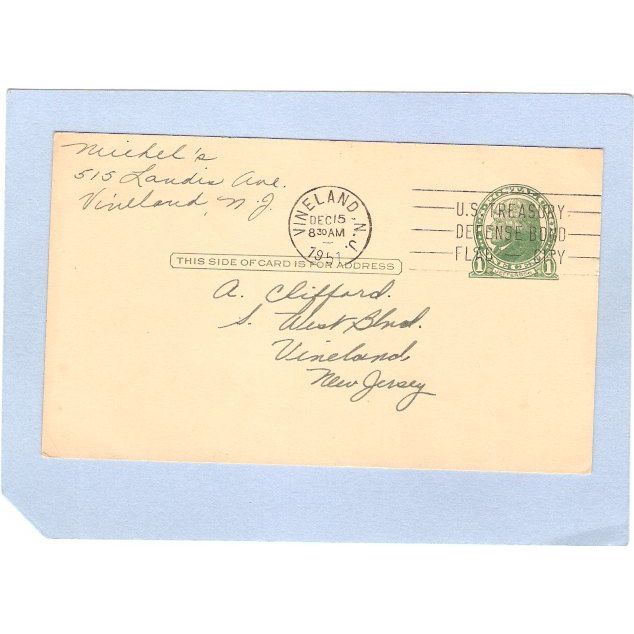 Michel's
515 Landis Ave.
Vineland, N.J.
VINELAND, N.J.
DEC 15
8 30 AM
1951
U.S. TREASURY
DEFENSE BOND
FLAG CITY
THIS SIDE OF CARD IS FOR ADDRESS
A. Clifford.
S. West Blvd.
Vineland
New Jersey